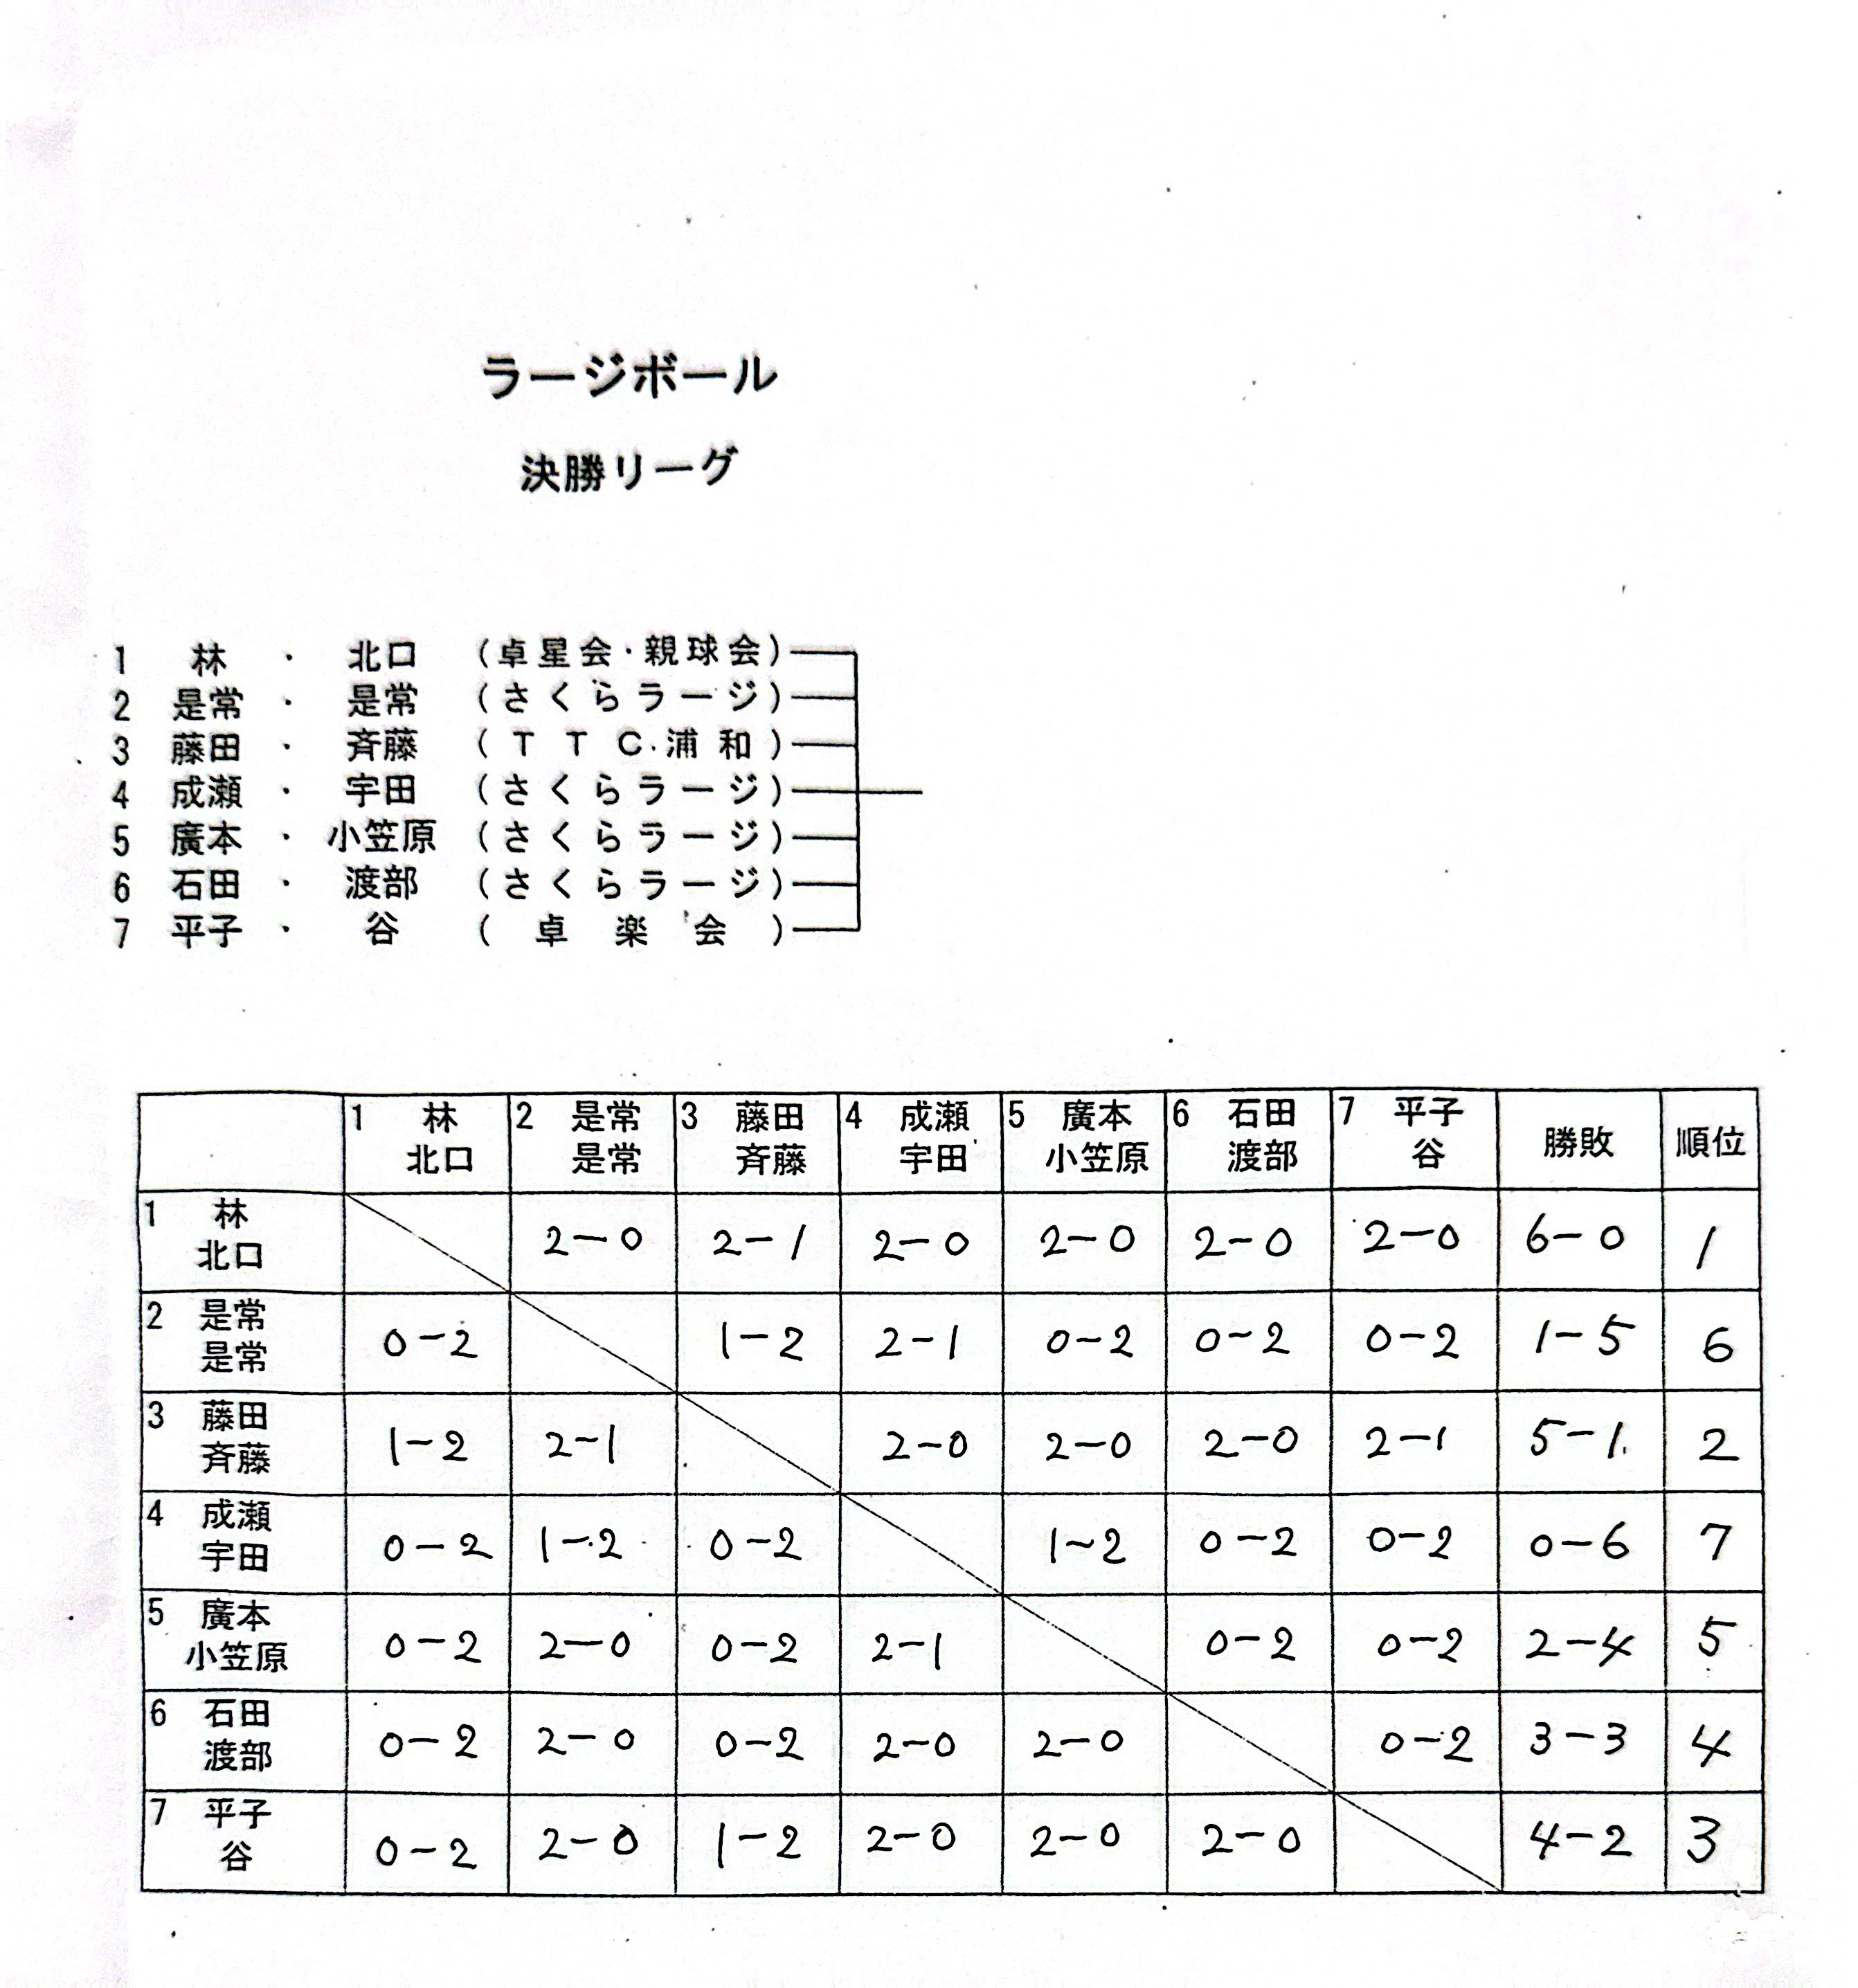 ラージボール
決勝リーグ
1 林 ・ 北口 (卓星会・親球会)
2 是常 ・ 是常 (さくらラージ)
3 藤田 ・ 斉藤 (TTC浦和)
4 成瀬 ・ 宇田 (さくらラージ)
5 廣本 ・ 小笠原 (さくらラージ)
6 石田 ・ 渡部 (さくらラージ)
7 平子 ・ 谷 (卓楽会)
1 林 北口 2 是常 是常 3 藤田 斉藤 4 成瀬 宇田 5 廣本 小笠原 6 石田 渡部 7 平子 谷 勝敗 順位
1 林 北口 2-0 2-1 2-0 2-0 2-0 2-0 6-0 1
2 是常 是常 0-2 1-2 2-1 0-2 0-2 0-2 1-5 6
3 藤田 斉藤 1-2 2-1 2-0 2-0 2-0 2-1 5-1 2
4 成瀬 宇田 0-2 1-2 0-2 1-2 0-2 0-2 0-6 7
5 廣本 小笠原 0-2 2-0 0-2 2-1 0-2 0-2 2-4 5
6 石田 渡部 0-2 2-0 0-2 2-0 2-0 0-2 3-3 4
7 平子 谷 0-2 2-0 1-2 2-0 2-0 2-0 4-2 3